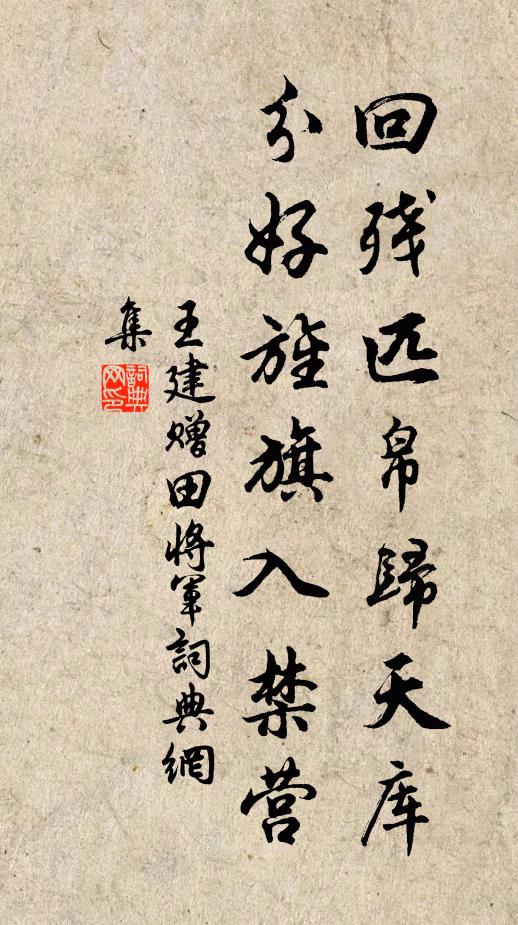 回残匹帛歸天库
分好旌旗入禁营
王建赠田将军詞典網
集
詞典网印